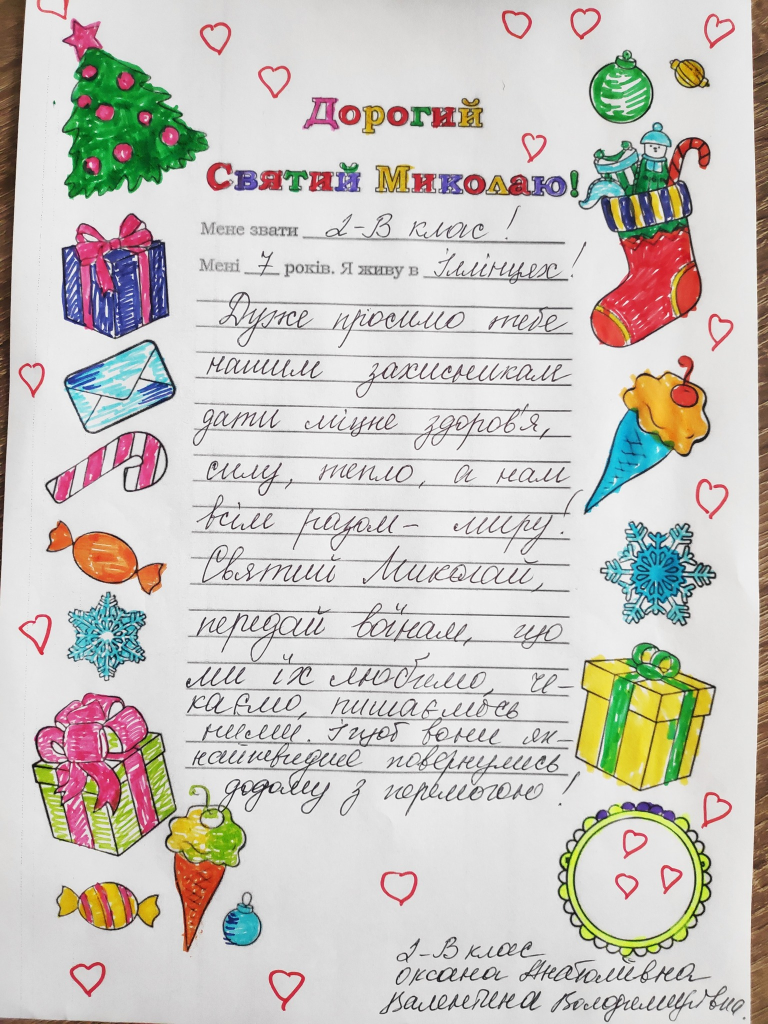 Дорогий
Святий Миколаю!
Мене звати 2-В клас!
Мені 7 років. Я живу в Іллінцях!
Дуже просимо тебе
нашим захисникам
дати міцне здоров'я,
силу, тепло, а нам
всім разом - миру!
Святий Миколай,
передай воїнам, що
ми їх любимо, че-
каємо, пишаємось
ними. І щоб вони як-
найшвидше повернулись
додому з перемогою!
2-В клас
Оксана Анатоліївна
Валентина Володимирівна